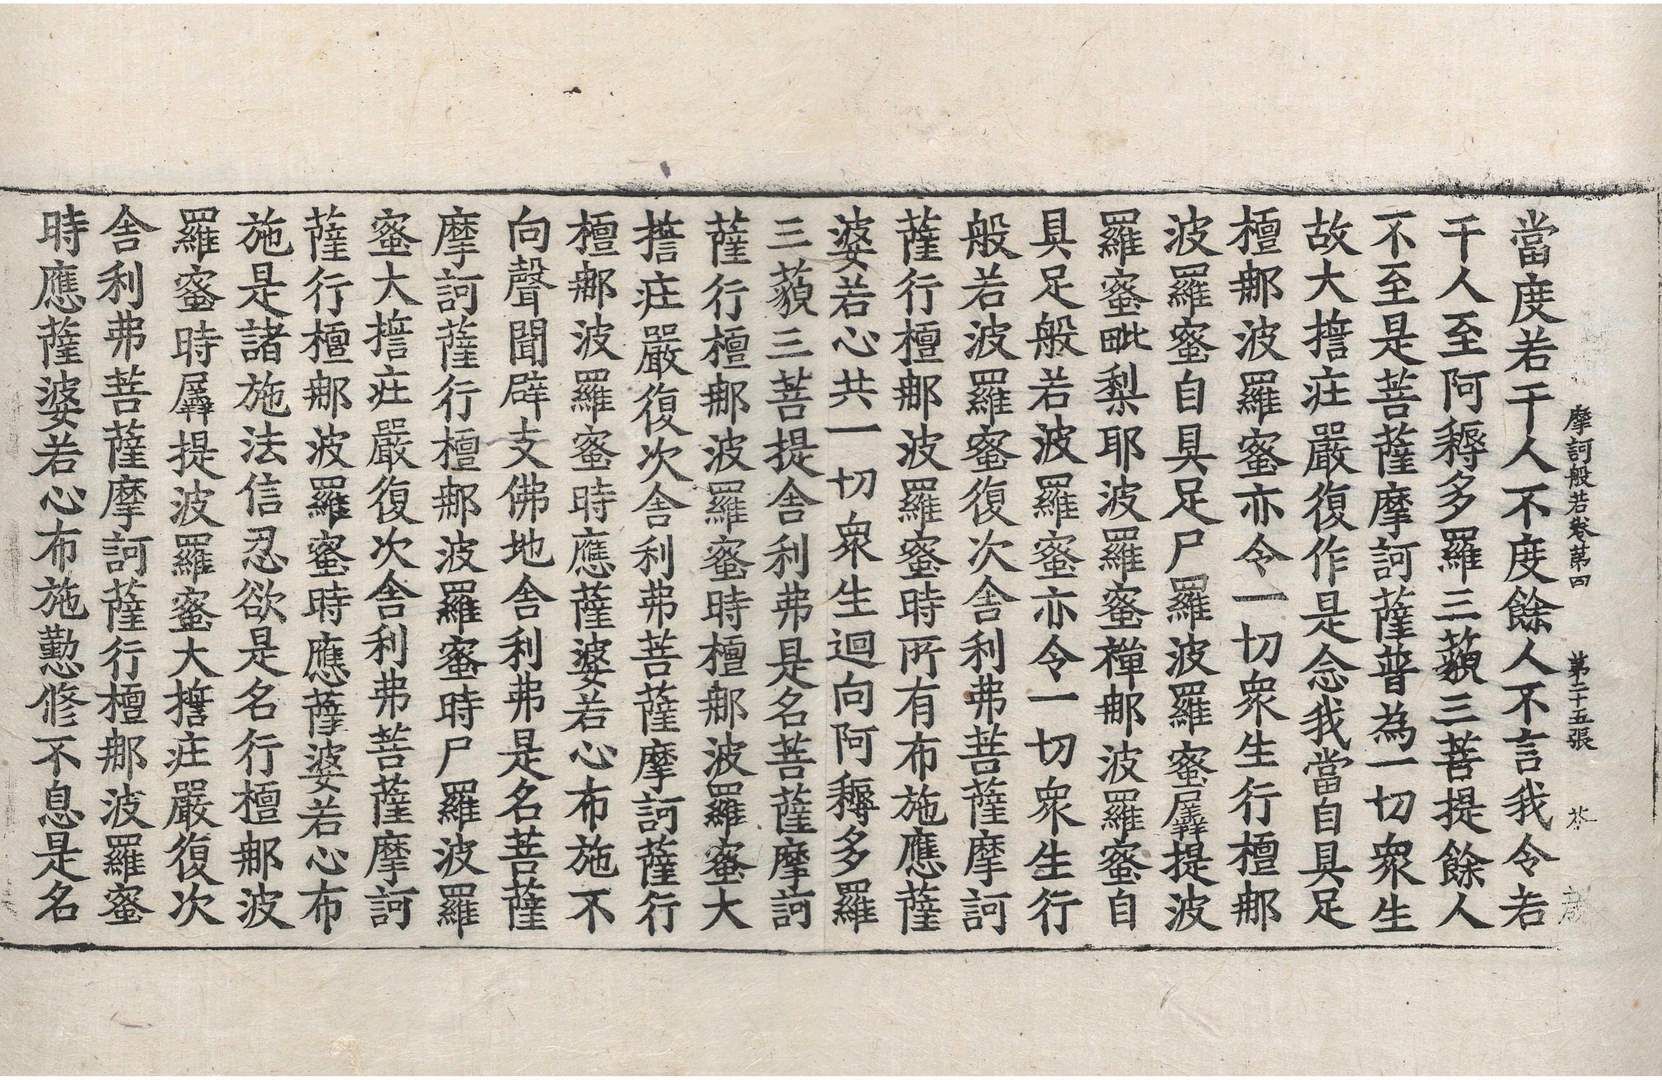 摩訶般若卷第四　第二十五張
當度若干人不度餘人不言我令若
千人至阿耨多羅三藐三菩提餘人
不至是菩薩摩訶薩普為一切衆生
故大擔莊嚴復作是念我當自具足
檀那波羅蜜亦令一切衆生行檀那
波羅蜜自具足尸羅波羅蜜羼提波
羅蜜毗梨耶波羅蜜禪那波羅蜜自
具足般若波羅蜜亦令一切衆生行
般若波羅蜜復次舍利弗菩薩摩訶
薩行檀那波羅蜜時所有布施應薩
婆若心共一切衆生迴向阿耨多羅
三藐三菩提舍利弗是名菩薩摩訶
薩行檀那波羅蜜時檀那波羅蜜大
擔莊嚴復次舍利弗菩薩摩訶薩行
檀那波羅蜜時應薩婆若心布施不
向聲聞辟支佛地舍利弗是名菩薩
摩訶薩行檀那波羅蜜時尸羅波羅
蜜大擔莊嚴復次舍利弗菩薩摩訶
薩行檀那波羅蜜時應薩婆若心布
施是諸施法信忍欲是名行檀那波
羅蜜時羼提波羅蜜大擔莊嚴復次
舍利弗菩薩摩訶薩行檀那波羅蜜
時應薩婆若心布施懃修不息是名